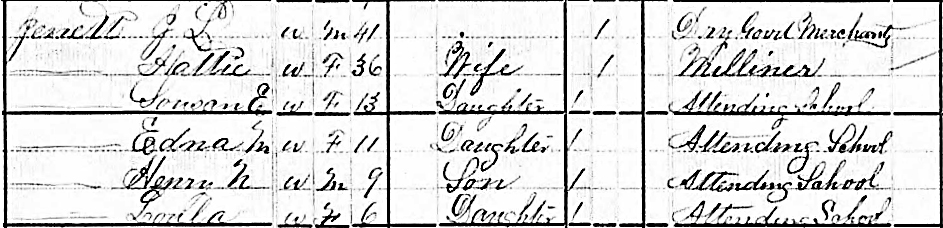 Jerrett J L W M 41 1 Dry Good Merchant
Hattie W F 36 Wife 1 Milliner
Sousan E W F 13 Daughter 1 Attending School
Edna M W F 11 Daughter 1 Attending School
Henry N W M 9 Son 1 Attending School
Loula W F 6 Daughter 1 Attending School